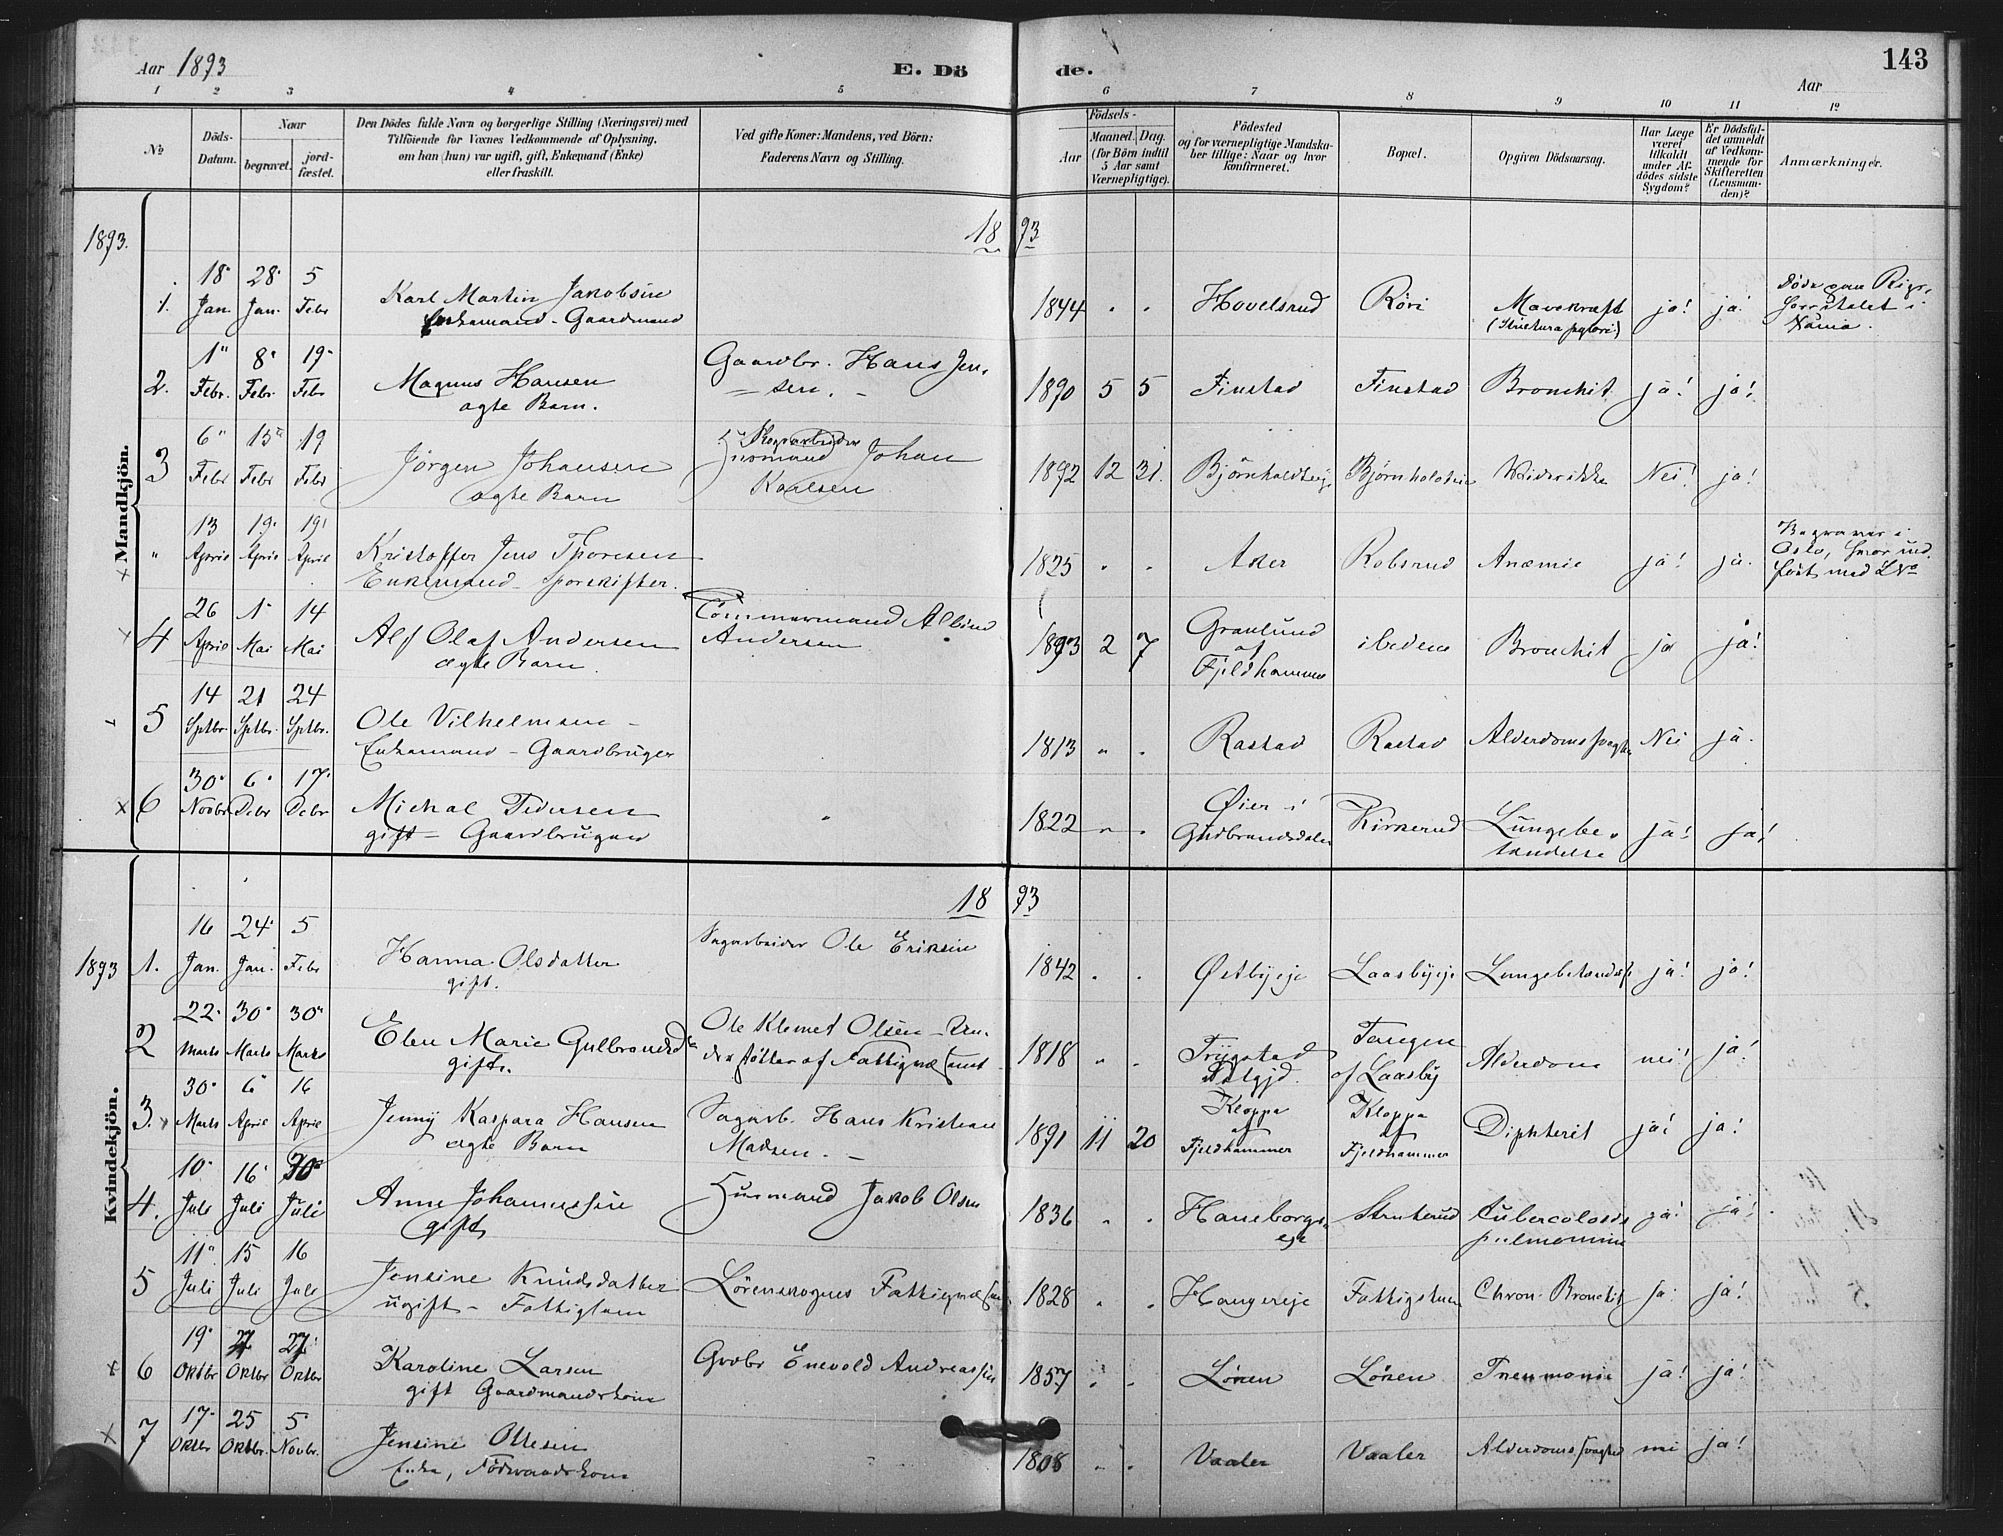 Aar 1893
E. Dö de.
Aar
143
1 2 3 4 5 6 7 8 9 10 11 12
No
Döds-Datum.
Naar
begravet.
jord-fæstet.
Den Dödes fulde Navn og borgerlige Stilling (Næringsvei) med
Tilföiende for Voxnes Vedkommende af Oplysning,
om han (hun) var ugift, gift, Enkemand (Enke)
eller fraskilt.
Ved gifte Koner: Mandens, ved Börn:
Faderens Navn og Stilling.
Födsels-
Aar
Maaned. Dag.
(for Börn indtil
5 Aar samt
Værnepligtige).
Födested
og for værnepligtige Mandska-
ber tillige: Naar og hvor
konfirmeret.
Bopæl.
Opgiven Dödsaarsag.
Har Læge
været
tilkaldt
under Af-
dödes sidste
Sygdom?
Er Dödsful-
det anmeldt
af Vedkom-
mende for
Skifteretten
(Lensman-
den)?
Anmærkninger.
Mandkjön.
1893.
18 93
1. 18 Jan. 28 Jan. 5 Febr Karl Martin Jakobsen
Enkemand - Gaardmand
1844 Hovelsrud Röri Mavekræft ja! ja!
Döde paa Rigs-
hospitalet i
2. 1 Febr. 8 Febr. 19 Febr Magnus Hansen
ægte Barn.
Gaardbr. Hans Jen-
sen.
1890 5 5 Finstad Finstad Bronchit ja! ja!
3 6 Febr 13 Febr 19 Febr Jörgen Johansen
ægte Barn
Husmand Skogarbeider Johan
Karlsen
1892 12 31. Nei! ja!
" 13 April 19 April 19 April Kristoffer Jens Thoresen
Enkemand - Sporskifter.
1825 Aker Robsrud Anæmie ja! ja.
Begraves i
Oslo,
4 26 April 1 Mai 14 Mai Alf Olaf Andersen
ægte Barn.
Tömmermand Albin
Andersen
1893 2 7 Granlund
af
Fjeldhammer
ibidem Bronchit ja ja!
5 14 Sptbr. 21 Sptbr. 24 Sptbr. Ole Vilhelmsen
Enkemand - Gaardbruger
1813 Rastad Rastad Nei ja.
6 30 Novbr 6 Debr 17 Debr Michal Pedersen
gift - Gaardbruger
1822 Öier i
Gudbrandsdalen
Kirkerud Lungebe-
tændelse
ja! ja!
Kvindekjön.
18 93
1893 1. 16 Jan. 24 Jan. 5 Febr Hanna Olsdatter
gift.
Sagarbeider Ole Eriksen
1842 Östbyeje Laasbyeje ja! ja!
2 22 Marts 30 Marts 30 Marts Elen Marie Gulbrandsd
gift.
Ole Klemet Olsen - Un-
derstöttes af
1818 Trygstad
Tangen
af Laasby
Alderdom nei! ja!
3. 30 Marts 6 April 16 April Jenny Kaspara Hansen
ægte Barn
Sagarb. Hans Kristian
Madsen.
1891 11 20 Kloppa
af
Fjeldhammer
Kloppa
af
Fjeldhammer
Diphterit ja! ja!
4. 10 Juli 16 Juli 30 Juli Anne Johannessen
gift
Husmand Jakob Olsen
1836 Haneborgs-
eje
Tubercolosis
pulmonum
ja! ja!
5 11 Juli 15 Juli 16 Juli Jensine Knudsdatter
ugift - Fattiglem
Lörenskogens
1828 Hangereje Chron. Bronchit ja. ja!
6 19 Oktbr 27 Oktbr 27 Oktbr Karoline Larsen
gift Gaardmandskone
Grdbr Enevold Andreassen
1857 Lören Lören Pneumonie ja! ja!
7 17 Oktbr 25 Oktbr. 5 Novbr. Jensine Olsen
Enke, Föderaadskone
1808 Vaaler Vaaler Alderdomssvaghed nei ja!